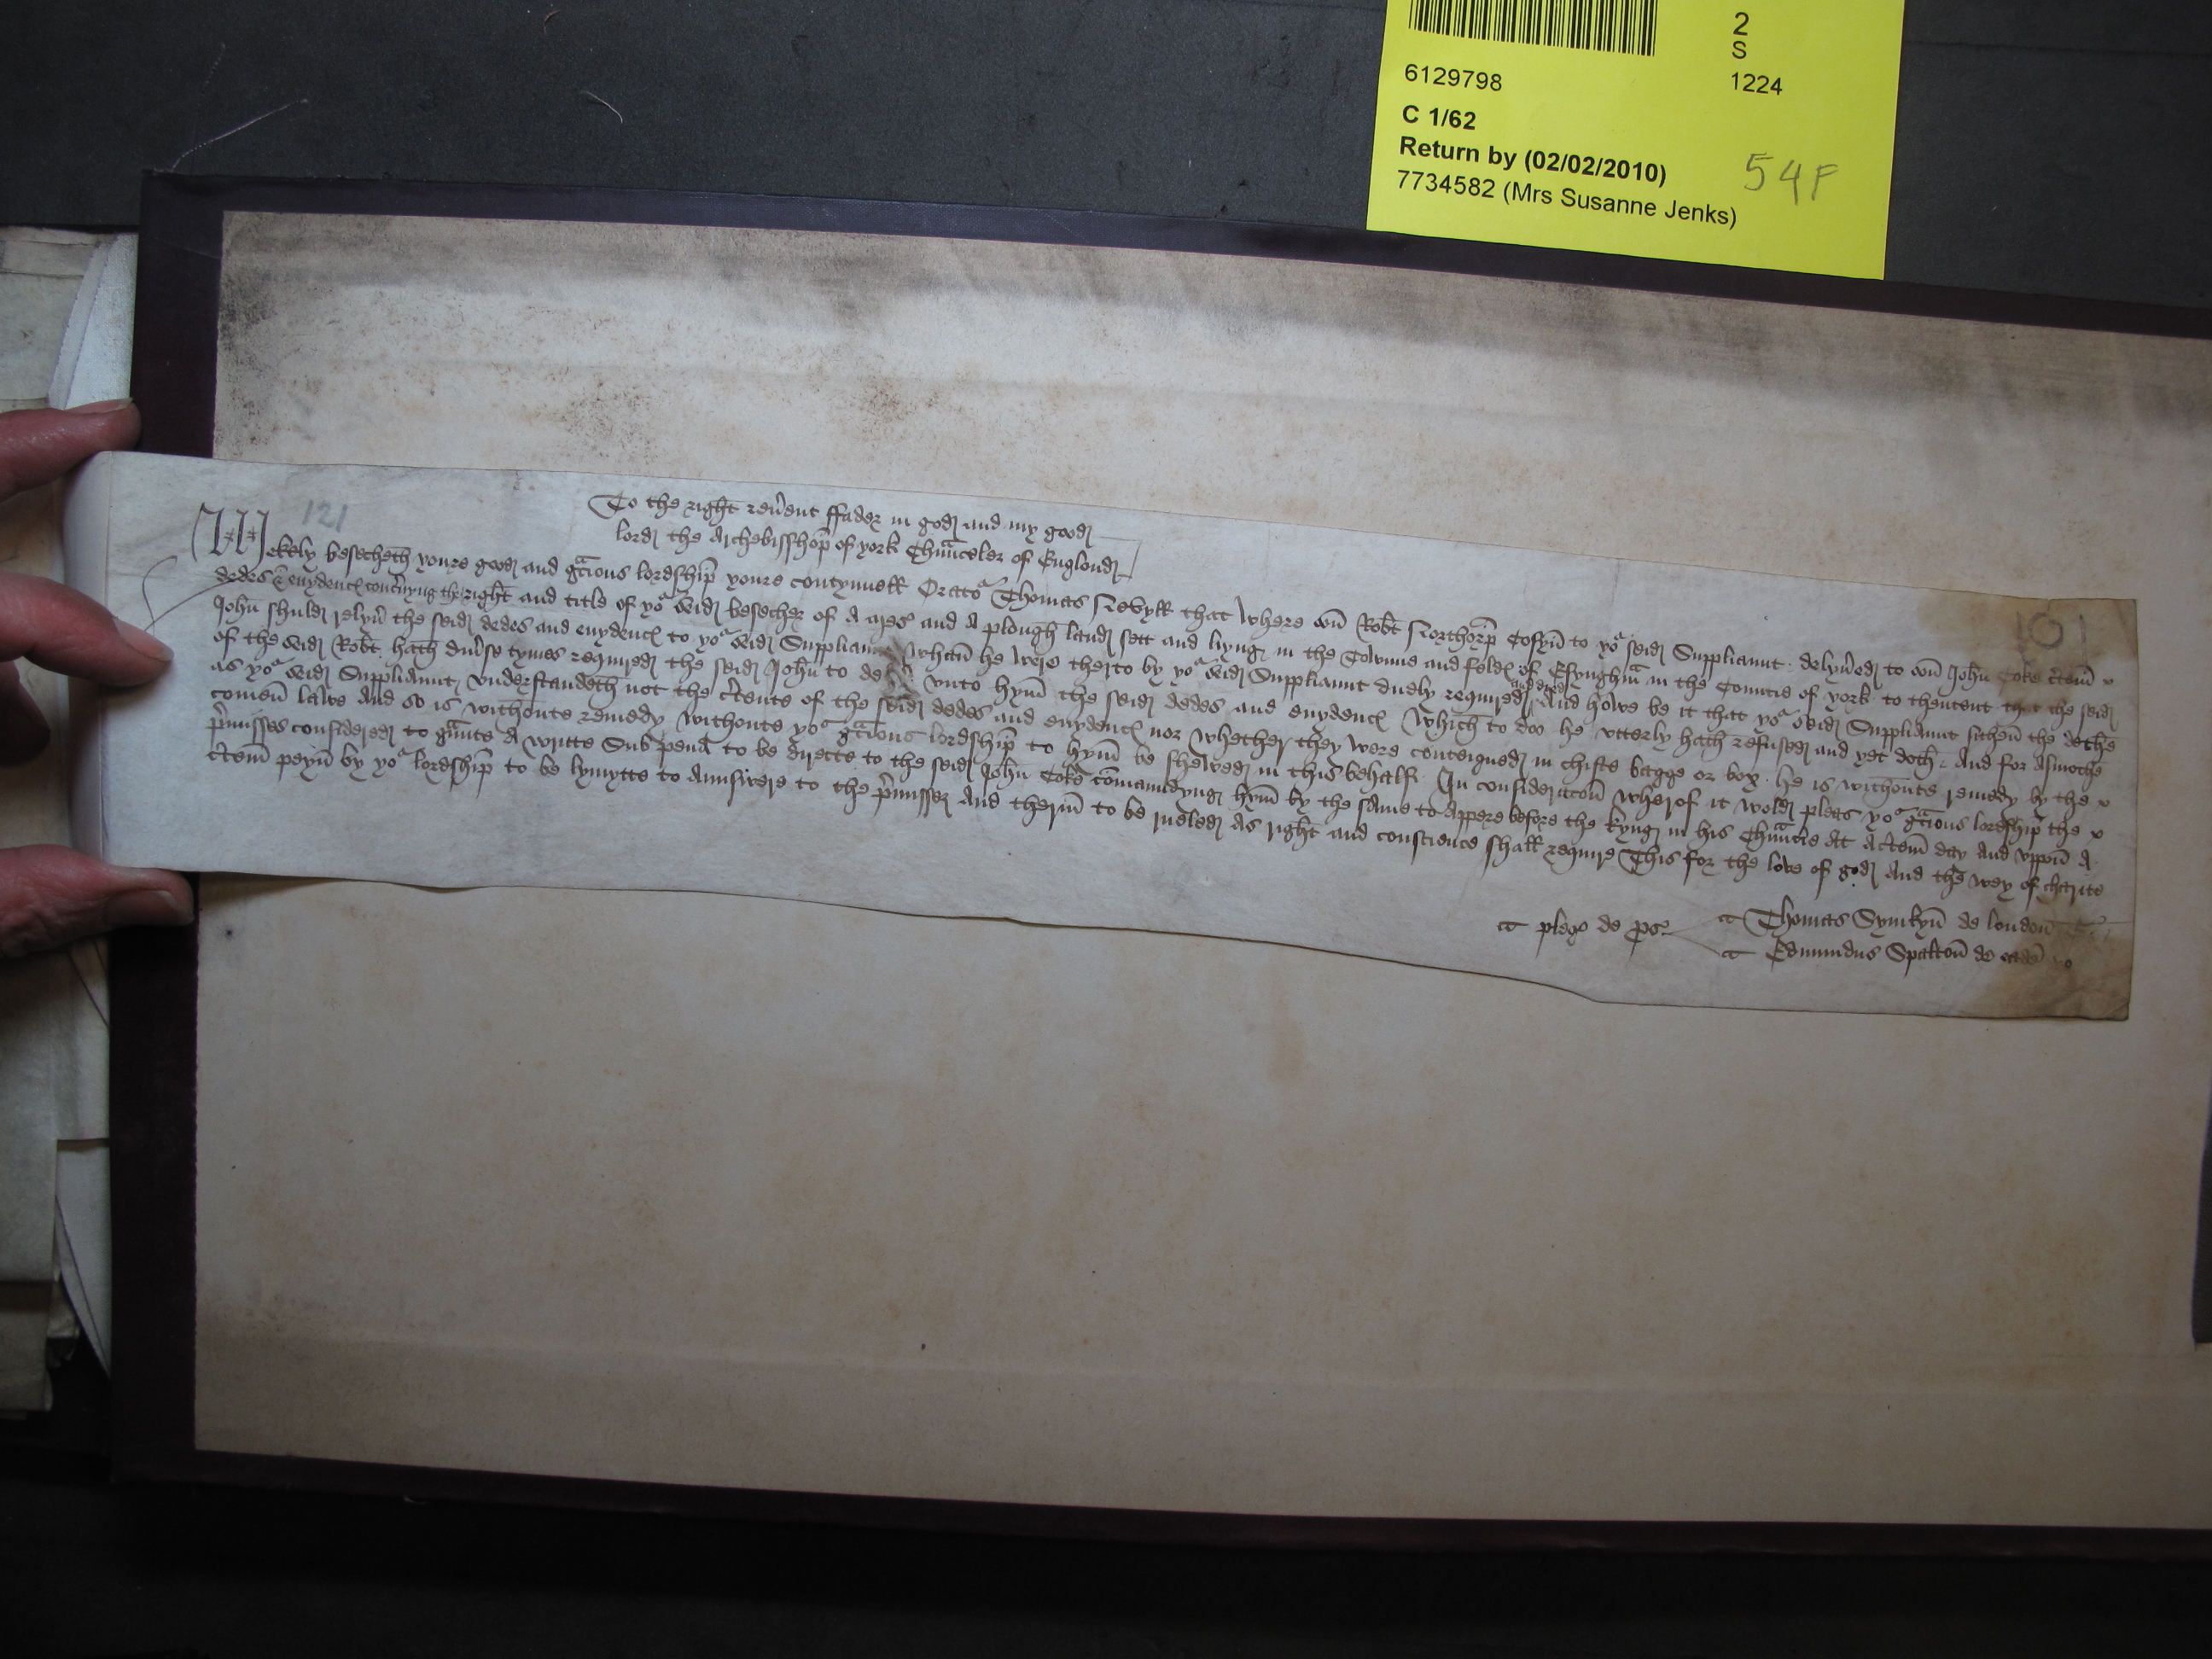 2
S
6129798 1224
C 1/62
Return by (02/02/2010) 54F
7734582 (Mrs Susanne Jenks)
121
To the right reu'ent ffader in god and my good
lord the Archebisshop of york Chaunceler of Englond
101
Mekely besecheth youre good and gracious lordship youre contynuell Orator Thomas Nevyll that where oon Robt Northorp Cosyn to yor seid Suppliaunt delyu'ed to oon John Coke c'tein
dedes & euydence conc'nyng the right and title of yor seid besecher of A mees and A plough land sett and liyng in the Towne and feldes of Esyngham in the Countie of york to thentent that the seid
John shuld relyu' the seid dedes and euydence to yor seid Suppliaunt whan he were therto by yor seid Suppliaunt duely required And howe be it that yor seid Suppliaunt sithen the dethe
of the seid Robt hath diu'se tymes required the seid John to de vnto hym the seid dedes and euydence Which to doo he vtterly hath refused and yet doth And for Asmoche
as yor seid Suppliaunt vnderstandeth not the c'tente of the seid dedes and euydence nor whether they were conteigned in chiste bagge or box he is withoute remedy by the
comen lawe And so is withoute remedy withoute yor gracious lordship to hym be shewed in this behalf In consideracon wherof it wold pleas yor gracious lordship the
p'misses considered to graunte A writte Sub pena to be directe to the seid John Coke comaundyng hym by the same to Appere before the kyng in his Chauncerie At A c'tein day And vppon A
c'tein peyn by yor lordship to be lymytte to Aunswere to the p'misses And therin to be ruled As right and conscience shall require This for the love of god And the wey of charite
pleg de pse Thomas Symkyn de london
Edmundus Spalton de eadem